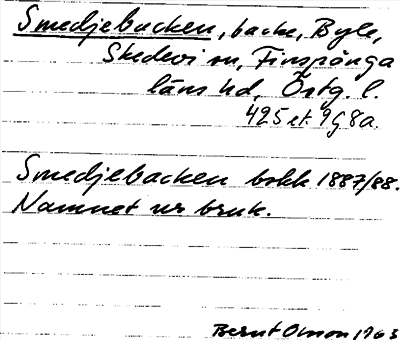 Smedjebacken, backe, Byle,
Skedevi sn, Finspånga
läns hd, Östg. l.
425 et. 9g8a.
Smedjebacken bokk 1887/88.
Namnet ur bruk.
Bernt Olsson 1963